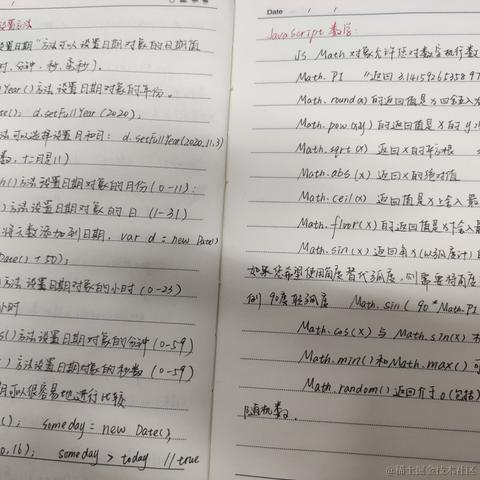 设置方法
设置日期"方法可以设置日期对象的日期值
时、分钟、秒、毫秒)。
Year()方法设置日期对象的年份。
ate(); d.setFullYear(2020);
法可以选择设置月和日: d.setFullYear(2020,11,3)
数,十二月是11)
h()方法设置日期对象的月份(0-11):
)方法设置日期对象的日(1-31)
将天数添加到日期, var d = new Date()
Date()+50);
)方法设置日期对象的小时(0-23)
小时
s()方法设置日期对象的分钟(0-59)
()方法设置日期对象的秒数(0-59)
期可以很容易地进行比较
(); someday = new Date();
0,16); someday > today //true
Date / /
JavaScript 数学:
JS Math 对象允许您对数字执行数
Math.PI "返回 3.141592653589
Math.round(x) 的返回值是x四舍五入为
Math.pow(x,y) 的返回值是x的y次
Math.sqrt(x) 返回x的平方根
Math.abs(x) 返回x的绝对值
Math.ceil(x) 返回值是x上舍入最
Math.floor(x) 的返回值是x下舍入最
Math.sin(x) 返回角x(以弧度计)的
如果您希望使用角度替代弧度,则需要将角度
例 90度转弧度 Math.sin( 90 * Math.PI
Math.cos(x) 与 Math.sin(x)
Math.min()和Math.max() 可
Math.random() 返回介于0(包括)
随机数。
@稀土掘金技术社区